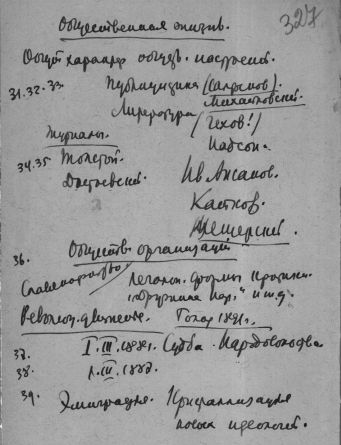 327
Общественная жизнь.
Общий характер обществ. настроений.
31.32.33. Публицистика (Сапронов).
Михайловский.
Литература (Чехов!)
Журналы. Надсон.
34.35 Толстой. Ив. Аксаков.
Достоевский. Катков.
Мещерский.
36. Обществ. организации
Славянофильство Легальн. формы
"и т.д.
Революц. движение. Голод 1891 г.
37. 1.III.1881. Судьба Народовольства
38. 1.III.1887.
39. Эмиграция. Кристаллизация
новых идеологий.